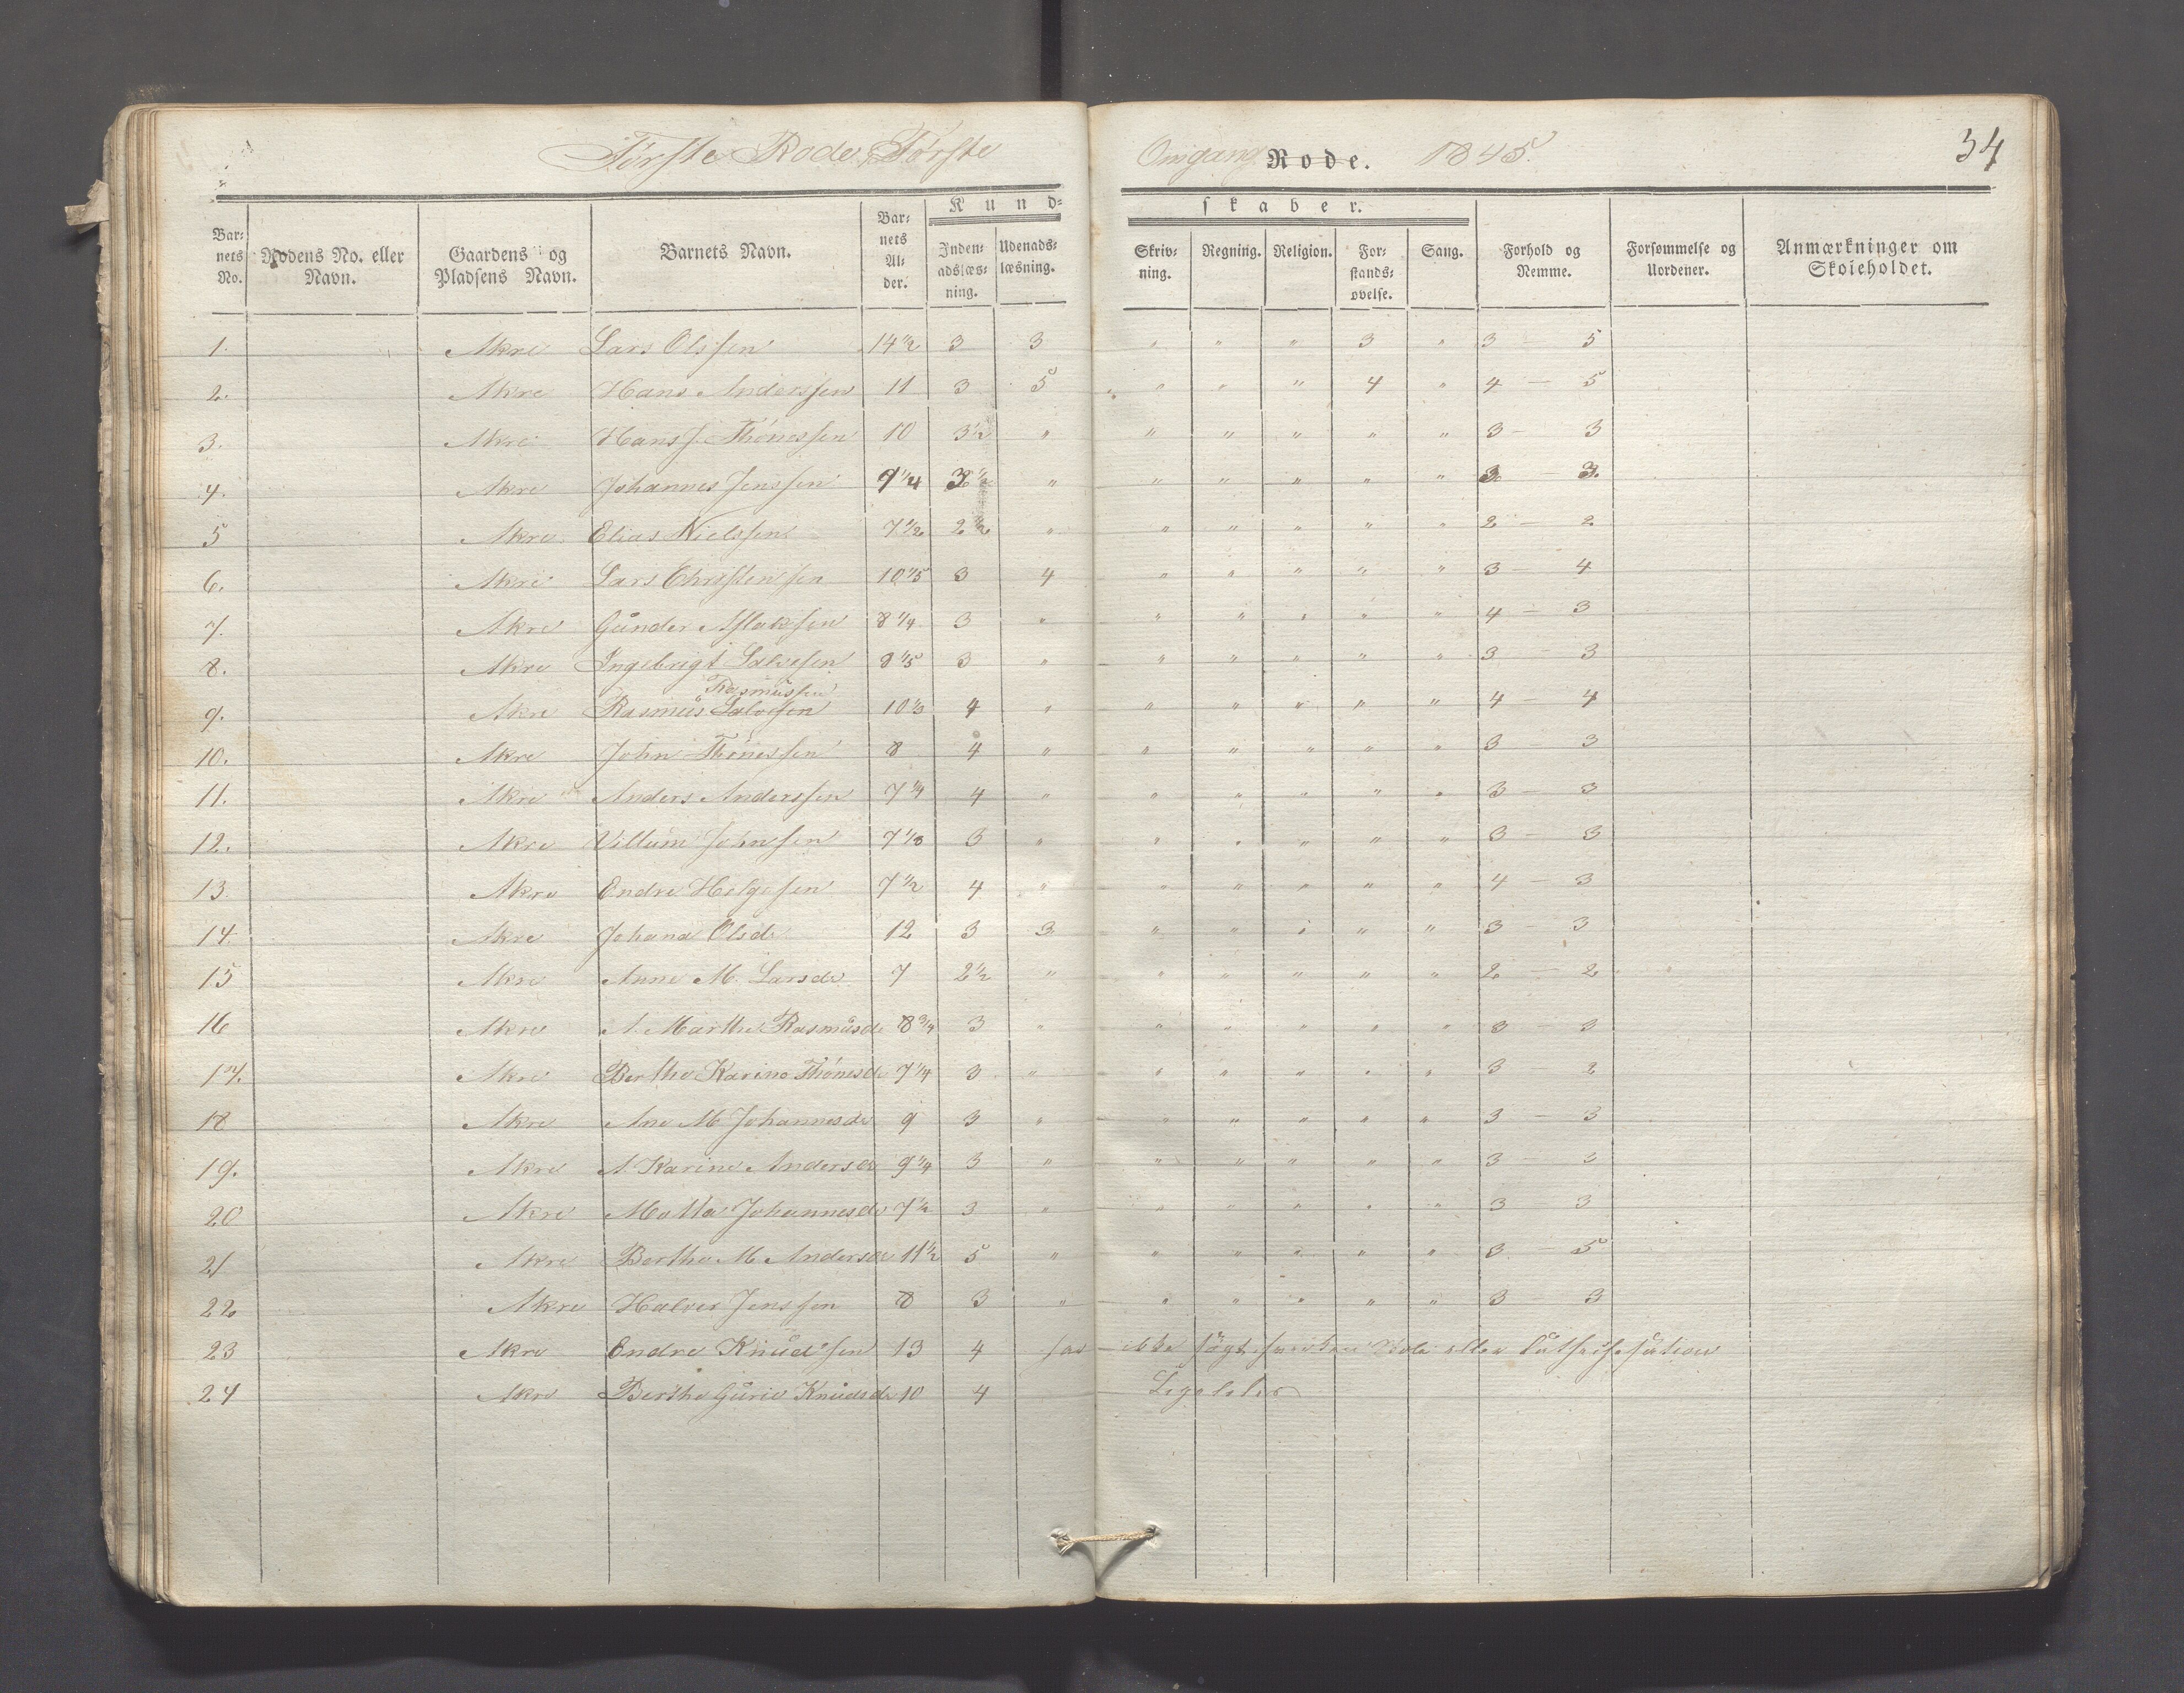 Første Rode, Første Omgang Rode. 1845. 34
Kund= skaber.
Bar= nets No. | Rodens No. eller Navn. | Gaardens og Pladsens Navn. | Barnets Navn. | Bar= nets Al= der. | Inden= adslæs= ning. | Udenads= læsning. | Skriv= ning. | Regning. | Religion. | For= stands= øvelse. | Sang. | Forhold og Nemme. | Forsømmelse og Uordener. | Anmærkninger om Skoleholdet.
1. Akre Lars Olsen 14 1/2 3 3 " " " 3 " 3 5
2. Akre Hans Anderssen 11 3 5 " " " 4 " 4 – 5
3. Akre Hans J. Thönessen 10 3 1/2 " " " " " " 3 – 3
4. Akre Johannes Jenssen 9 1/4 3 1/2 " " " " " " 3 – 3
5 Akre Elias Nielssen 7 1/2 2 1/2 " " " " " " 2 – 2
6. Akre Lars Christenssen 10 1/5 3 4 " " " " " 3 – 4
7. Akre Gunder Aslakssen 8 1/4 3 " " " " " " 4 – 3
8. Akre Ingebrigt Salvesen 8 1/5 3 " " " " " " 3 – 3
Rasmussen
9. Akre Rasmus Salvesen 10 1/3 4 " " " " " " 4 – 4
10. Akre John Thönessen 8 4 " " " " " " 3 – 3
11. Akre Anders Anderssen 7 1/4 4 " " " " " " 3 – 3
12. Akre Villum Johnsen 7 1/8 3 " " " " " " 3 – 3
13. Akre Endre Helgesen 7 1/2 4 " " " " " " 4 – 3
14. Akre Johana Olsd. 12 3 3 " " " " " 3 – 3
15 Akre Anne M. Larsd. 7 2 1/2 " " " " " " 2 – 2
16 Akre A. Marthe Rasmusd. 8 3/4 3 " " " " " " 3 3
17. Akre Berthe Karine Thönesd. 7 1/4 3 " " " " " " 3 2
18 Akre Ane M Johannesd. 9 3 " " " " " " 3 – 3
19. Akre A. Karine Andersd. 9 1/4 3 " " " " " " 3 – 3
20 Akre Malla Johannesd. 7 1/2 3 " " " " " " 3 3
21 Akre Berthe M. Andersd. 11 1/2 5 " " " " " " 3 5
22 Akre Halvor Jenssen 8 3 " " " " " " 3 – 3
23 Akre Endre Knudssen 13 4 har ikke søgt hverken Skole eller
24 Akre Berthe Gurie Knudsd. 10 4 Ligeledes